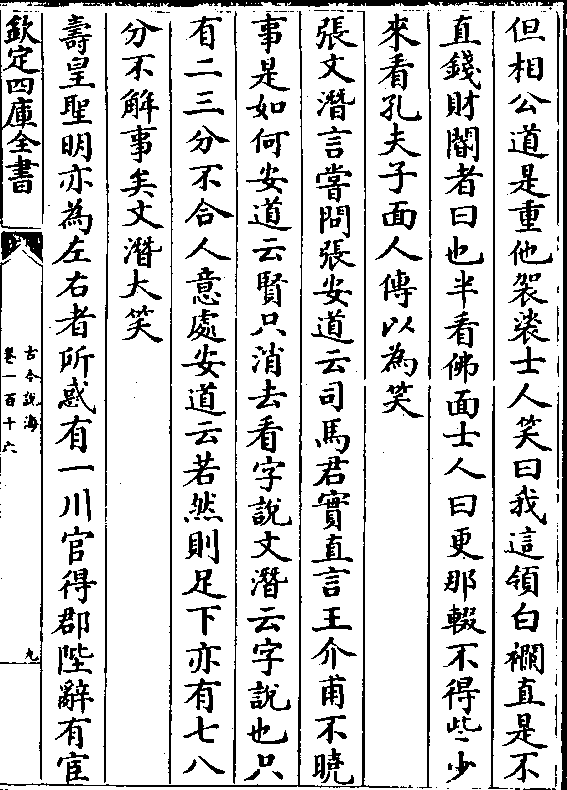 但相公道是重他袈裟士人笑曰我這領白襴直是不
直錢財閽者曰也半看佛面士人曰更那輟不得些少
來看孔夫子面人傳以為笑
張文潛言嘗問張安道云司馬君實直言王介甫不曉
事是如何安道云賢只消去看字說文潛云字說也只
有二三分不合人意處安道云若然則足下亦有七八
分不解事矣文潛大笑
壽皇聖明亦為左右者所惑有一川官得郡陛辭有宦
欽定四庫全書
古今說海
卷一百十六
九